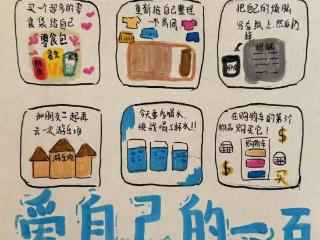 买一个超多的零
食袋给自己
零食包
重新给自己整理
一个房间
把自己的烦恼
写在纸上,然后扔
掉
烦恼
和朋友一起再
去一次游乐场
游乐场
今天要多喝水,
挑战喝八杯水!!
在购物车的第3个
物品购买它!
购物车
$
$
买
爱自己的一百